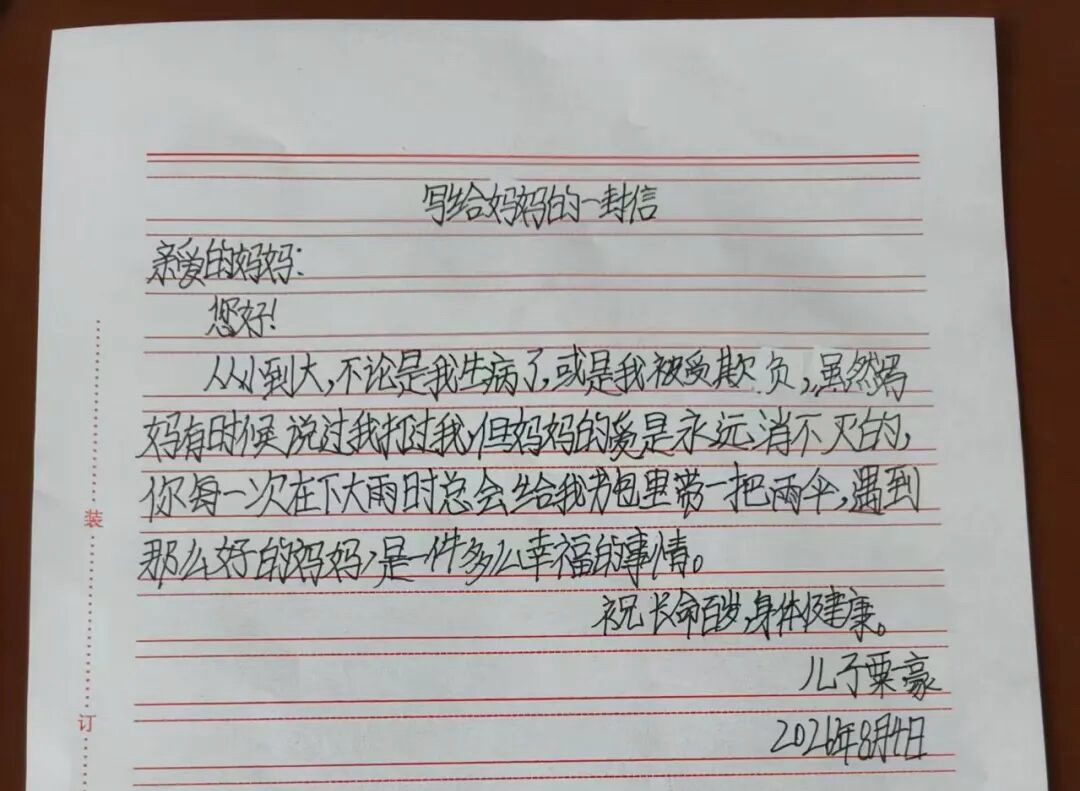 写给妈妈的一封信
亲爱的妈妈:
您好!
从小到大,不论是我生病了,或是我被受欺负,虽然妈
妈有时候说过我打过我,但妈妈的爱是永远消不灭的,
你每一次在下大雨时总会给我书包里带一把雨伞,遇到
那么好的妈妈,是一件多么幸福的事情。
祝长命百岁,身体健康。
儿子粟豪
2026年8月4日
装
订